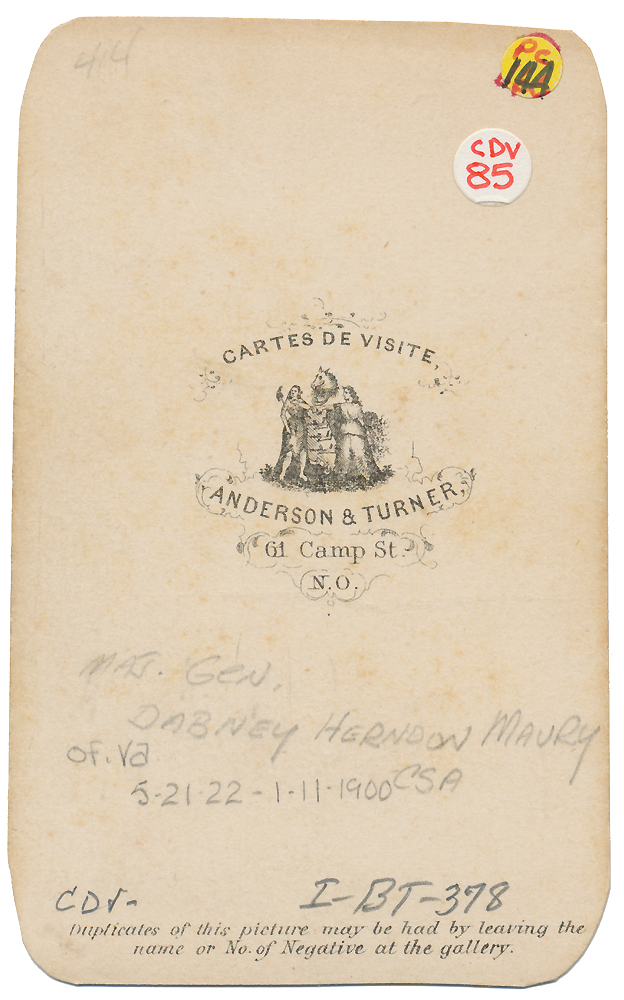 414
PC
144
CDV
85
CARTES DE VISITE,
ANDERSON & TURNER,
61 Camp St.
N.O.
MAJ. GEN.
DABNEY HERNDON MAURY
of. Va
CSA
5-21-22 - 1-11-1900
CDV-
I-BT-378
Duplicates of this picture may be had by leaving the
name or No. of Negative at the gallery.